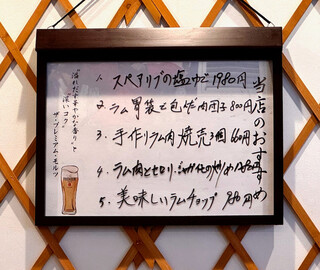 当店のおすすめ
1. スペアリブの塩ゆで 1980円
2. ラム 男装と包んだ肉団子 800円
3. 手作りラム肉焼売 3個 660円
4. ラム肉とセロリ、ジャガイモの炒め
5. 美味しいラムチョップ
溢れだす華やかな香りと
"深いコク"
ザ・プレミアム・モルツ